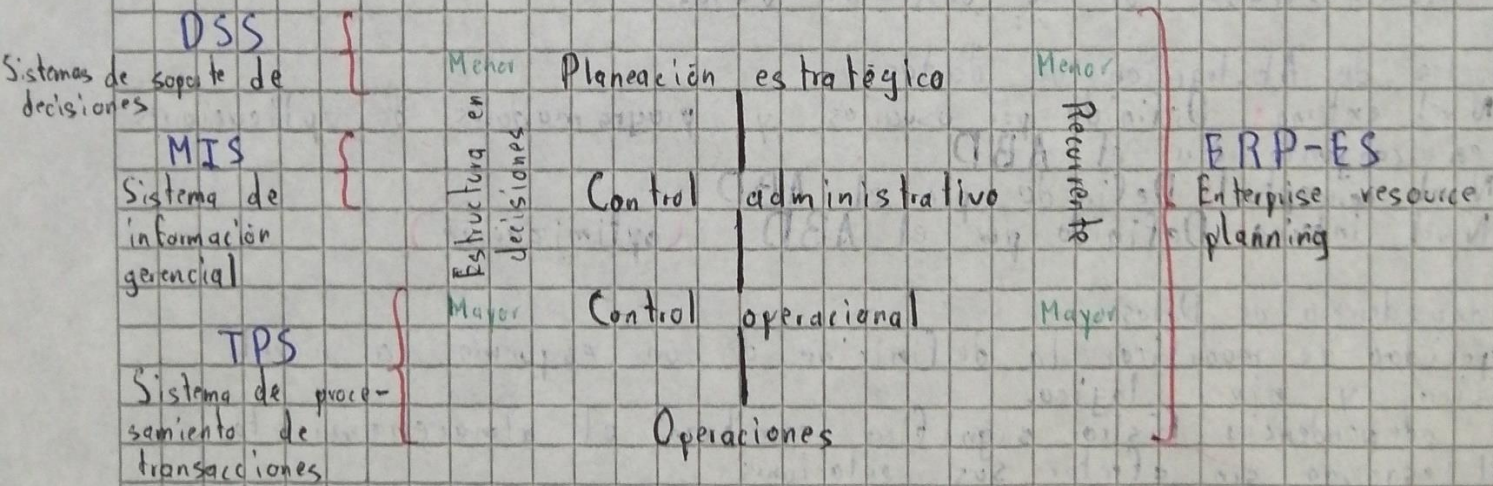 DSS
Sistemas de soporte de
decisiones
MIS
Sistema de
información
gerencial
TPS
Sistema de proce-
samiento de
transacciones
Menor
Estructura en
decisiones
Mayor
Planeación estratégica
Control administrativo
Control operacional
Operaciones
Menor
Recurrente
Mayor
ERP-ES
Enterpise resource
planning